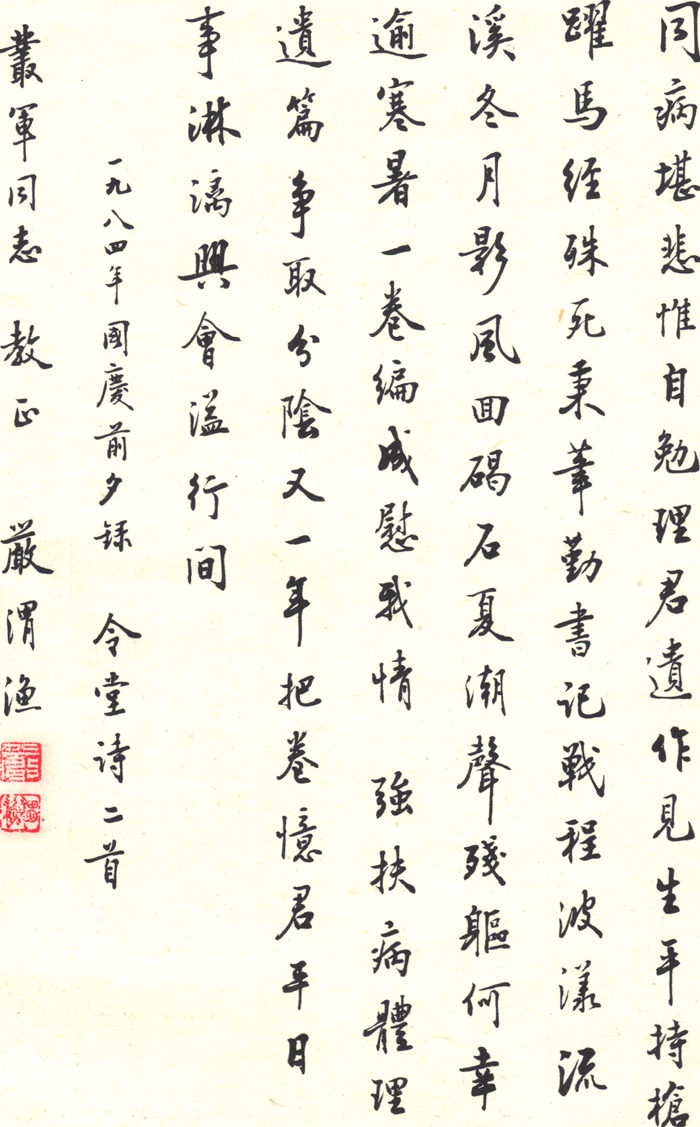 同病堪悲惟自勉理君遺作見生平持槍
躍馬經殊死秉筆勤書記戰程波漾流
溪冬月影風回碣石夏潮聲殘軀何幸
逾寒暑一卷編成慰我情 強扶病體理
遺篇爭取分陰又一年把卷憶君平日
事淋漓興會溢行間
一九八四年國慶前夕録 令堂诗二首
叢軍同志 教正 嚴渭漁